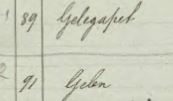 89 Gelegapet
91 Gelen